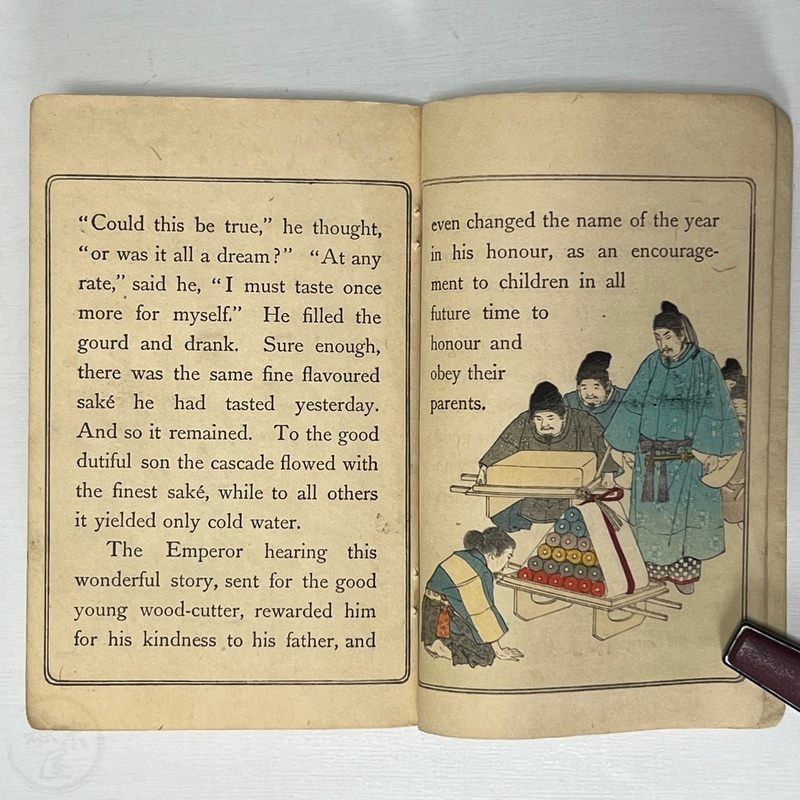 “Could this be true,” he thought,
“or was it all a dream?” “At any
rate,” said he, “I must taste once
more for myself.” He filled the
gourd and drank. Sure enough,
there was the same fine flavoured
saké he had tasted yesterday.
And so it remained. To the good
dutiful son the cascade flowed with
the finest saké, while to all others
it yielded only cold water.
The Emperor hearing this
wonderful story, sent for the good
young wood-cutter, rewarded him
for his kindness to his father, and
even changed the name of the year
in his honour, as an encourage-
ment to children in all
future time to
honour and
obey their
parents.